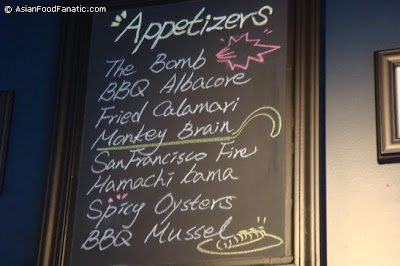 © AsianFoodFanatic.com
Appetizers
The Bomb
BBQ Albacore
Fried Calamari
Monkey Brain
San Francisco Fire
Hamachi kama
Spicy Oysters
BBQ Mussel